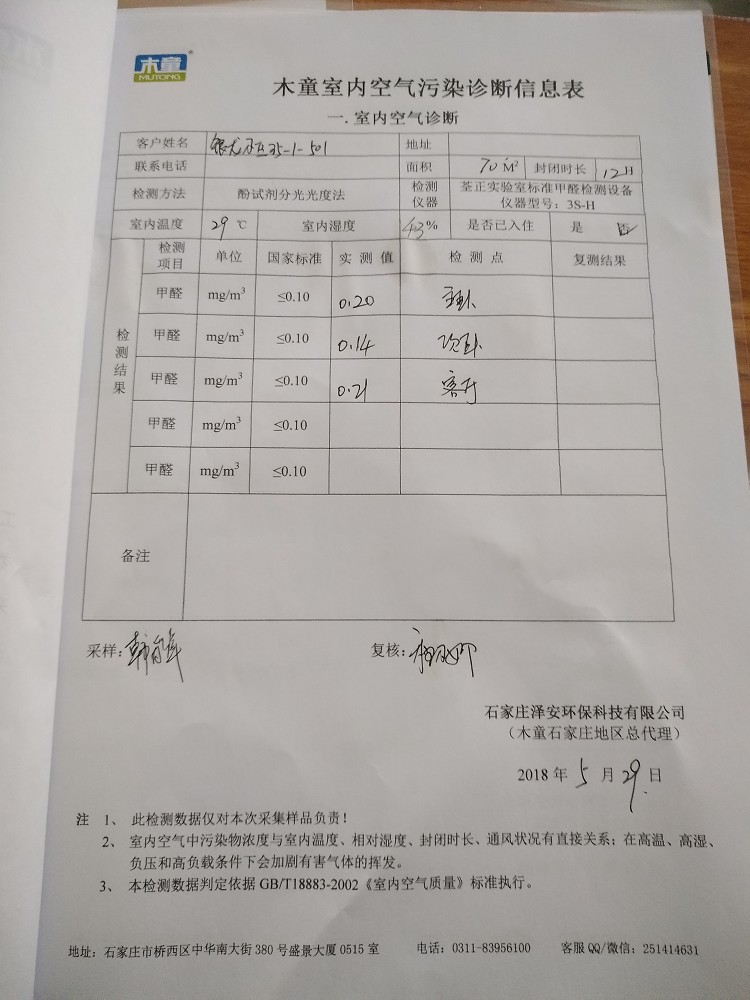 木童
MUTONG
木童室内空气污染诊断信息表
一.室内空气诊断
客户姓名 35-1-501 地址
联系电话 面积 70 M² 封闭时长 12H
检测方法 酚试剂分光光度法 检测仪器 荃正实验室标准甲醛检测设备
仪器型号：3S-H
室内温度 29 ℃ 室内湿度 43% 是否已入住 是 否
检测项目 单位 国家标准 实测值 检测点 复测结果
检测结果
甲醛 mg/m³ ≤0.10 0.20 主卧
甲醛 mg/m³ ≤0.10 0.14 次卧
甲醛 mg/m³ ≤0.10 0.21 客厅
甲醛 mg/m³ ≤0.10
甲醛 mg/m³ ≤0.10
备注
采样： 复核：
石家庄泽安环保科技有限公司
（木童石家庄地区总代理）
2018 年 5 月 29 日
注 1、 此检测数据仅对本次采集样品负责！
2、 室内空气中污染物浓度与室内温度、相对湿度、封闭时长、通风状况有直接关系；在高温、高湿、
负压和高负载条件下会加剧有害气体的挥发。
3、 本检测数据判定依据 GB/T18883-2002《室内空气质量》标准执行。
地址：石家庄市桥西区中华南大街 380 号盛景大厦 0515 室 电话：0311-83956100 客服 QQ/微信：251414631